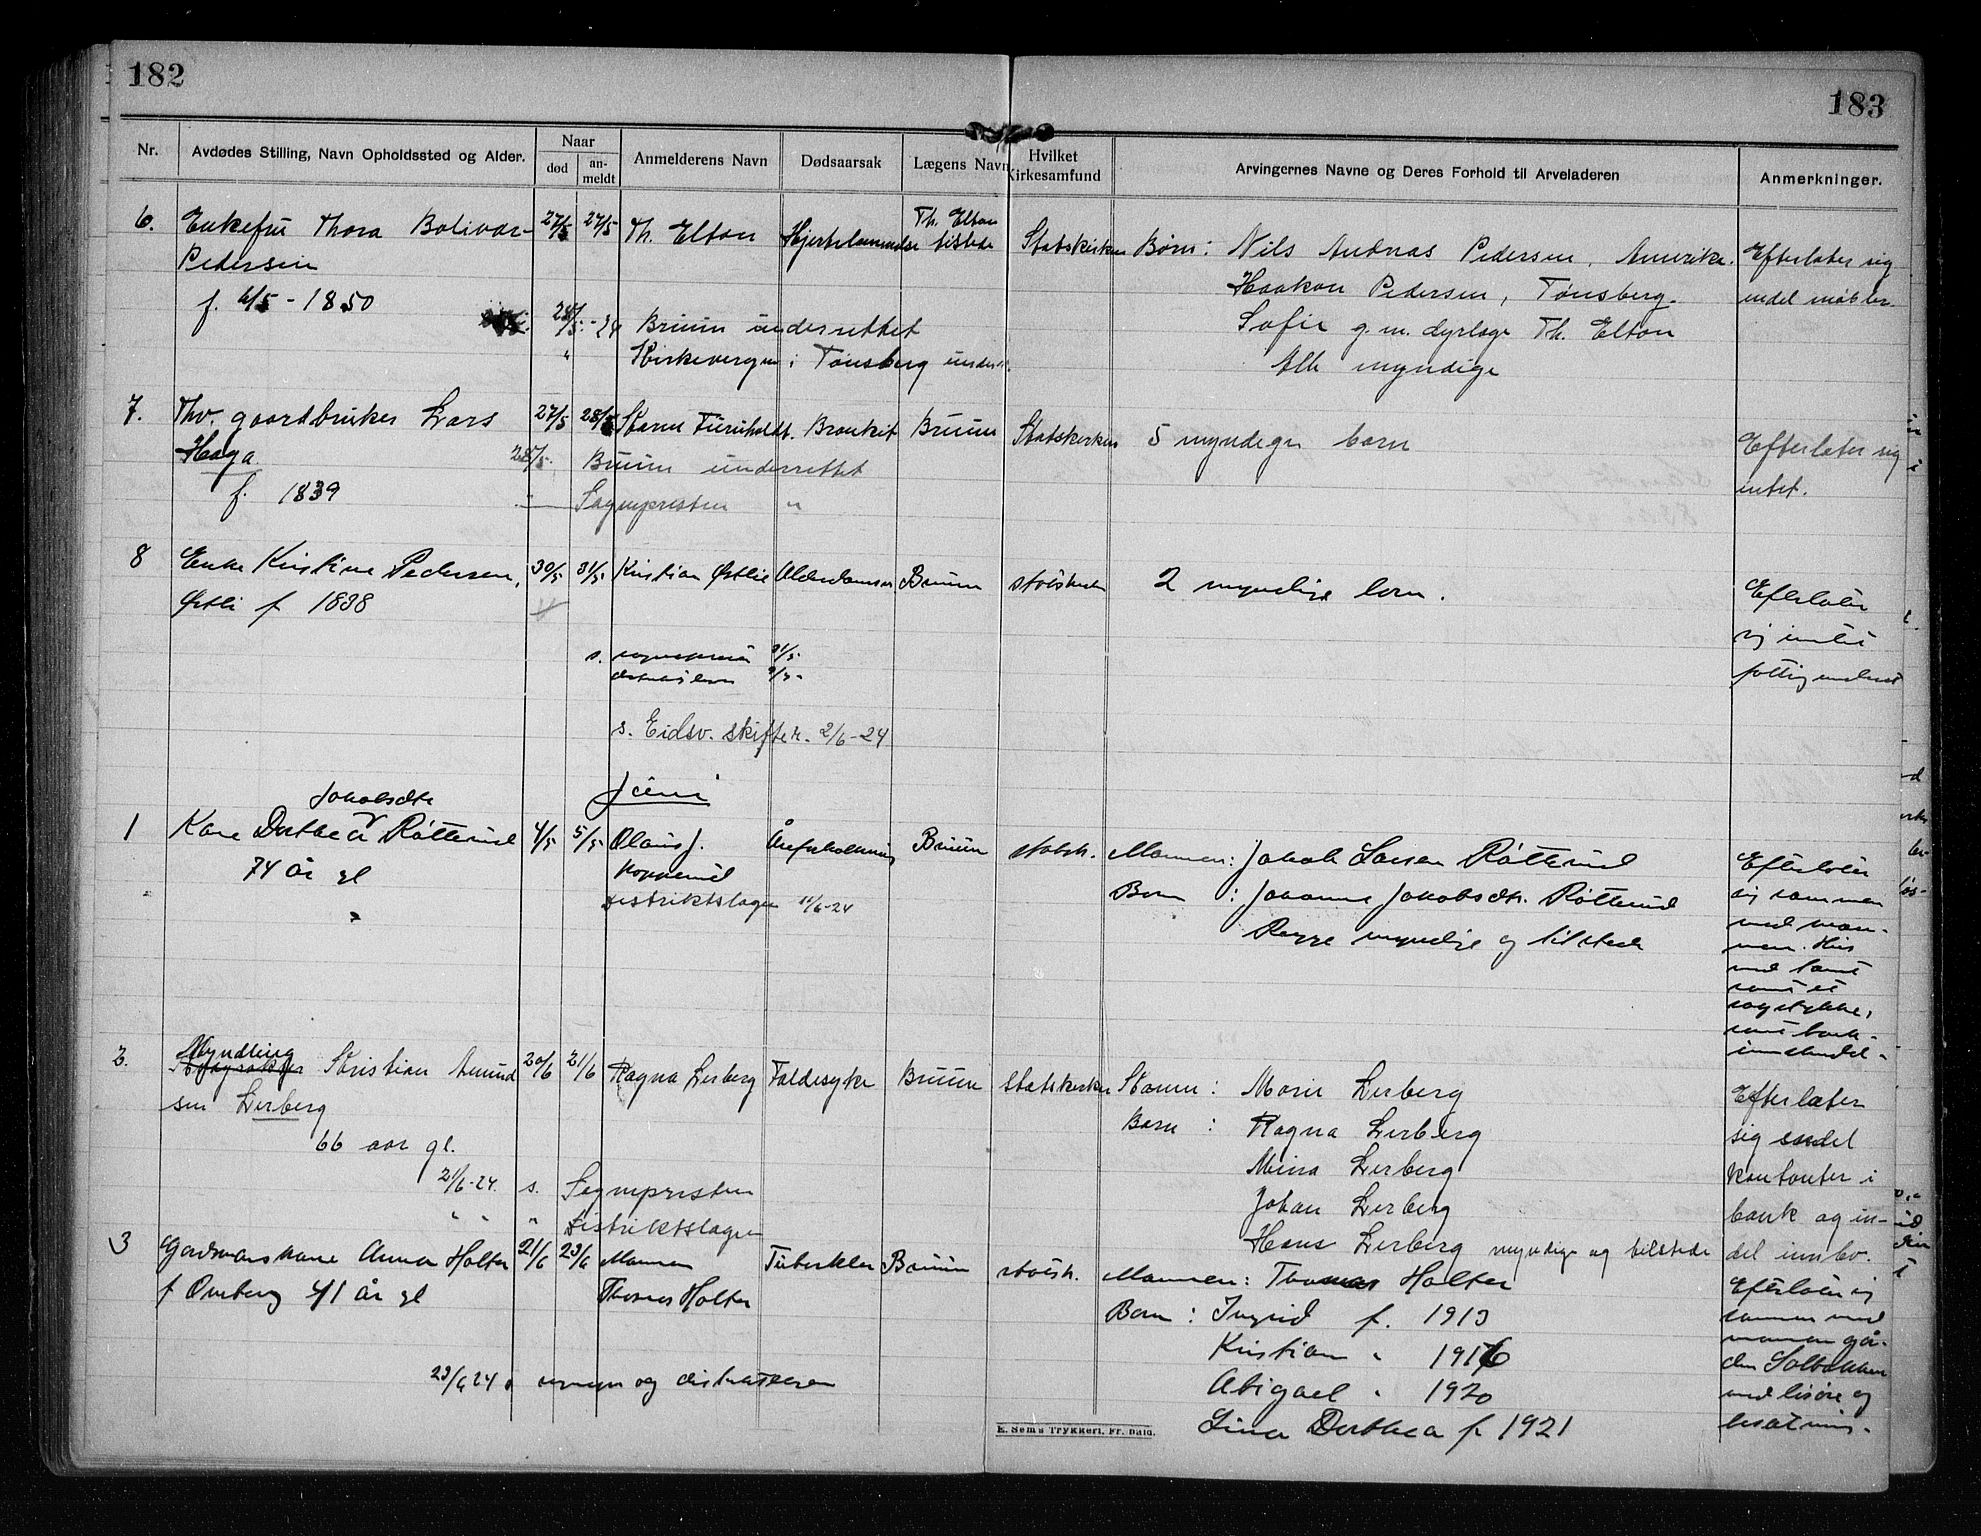 182
183
Nr.
Avdødes Stilling, Navn Opholdssted og Alder.
Naar
død
an-
meldt
Anmelderens Navn
Dødsaarsak
Lægens Navn
Hvilket
Kirkesamfund
Arvingernes Navne og Deres Forhold til Arveladeren
Anmerkninger.
6. Enkefru Thora Bolivar- 27/5 27/5 Th. Elton Hjertelammelse Th. Elton tilstede Statskirken Børn: Nils Andreas Pedersen, Amerika. Efterlater sig
Pedersen Haakon Pedersen, Tønsberg. endel møbler
f. 6/5 - 1850 28/5 - 24 Bruun underrettet Sofie g.m. dyrlæge Th. Elton
" Kirkevergen i Tønsberg underr. Alle myndige
7. Fhv. gaardbruker Lars 27/5 28/5 Furuholdt. Bronkit Bruun Statskirken 5 myndige barn Efterlater sig
Haga. 28/5. Bruun underrettet intet.
f. 1839 " Sognepresten "
8 Enke Kristine Pedersen, 30/5 31/5 Kristian Østlie Alderdoms Bruun statskirken 2 myndige born. Efterlater
Østli f 1838 sig intet
s. sognepresten 31/5 fattigunderst
s. Eidsv. skifter. 2/6-24
Juni
Jakobsdtr
1 Kare Dorthea Røtterud 4/5 5/5 Olaus J. Åreforkalkning Bruun statsk. Mannen: Jakob Larsen Røtterud Efterlater
74 år gl Born : Johanne Jakobsdtr. Røtterud sig sammen
Distriktslægen 11/6-24 myndige og tilstede med man-
nen. Hus
med tomt
samt et
samt bank-
innskudd.
2. Myndling Kristian Amund 20/6 21/6 Ragna Lerberg Faldesyke Bruun Statskirken Konen: Marie Lerberg Efterlater
sen Lerberg Barn : Ragna Lerberg sig endel
66 aar gl. Mina Lerberg kontanter i
21/6-24. s. Sognepresten Johan Lerberg bank og in-
" " " Distriktslægen Hans Lerberg myndige og tilstede del innbo.
3 Gardmannskone Anna Holter 21/6 23/6 Mannen Tuberkler Bruun statsk. Mannen: Thomas Holter Efterlater sig
f Overberg 41 år gl Thomas Holter Born : Ingrid f. 1913 sammen med
Kristian " 1916 mannen går-
23/6 24 Abigael " 1920 den Solbakken
Lina Dorthea f 1921 med lisøre og
besætning.
E. Sem's Trykkeri, Fr. Hald.